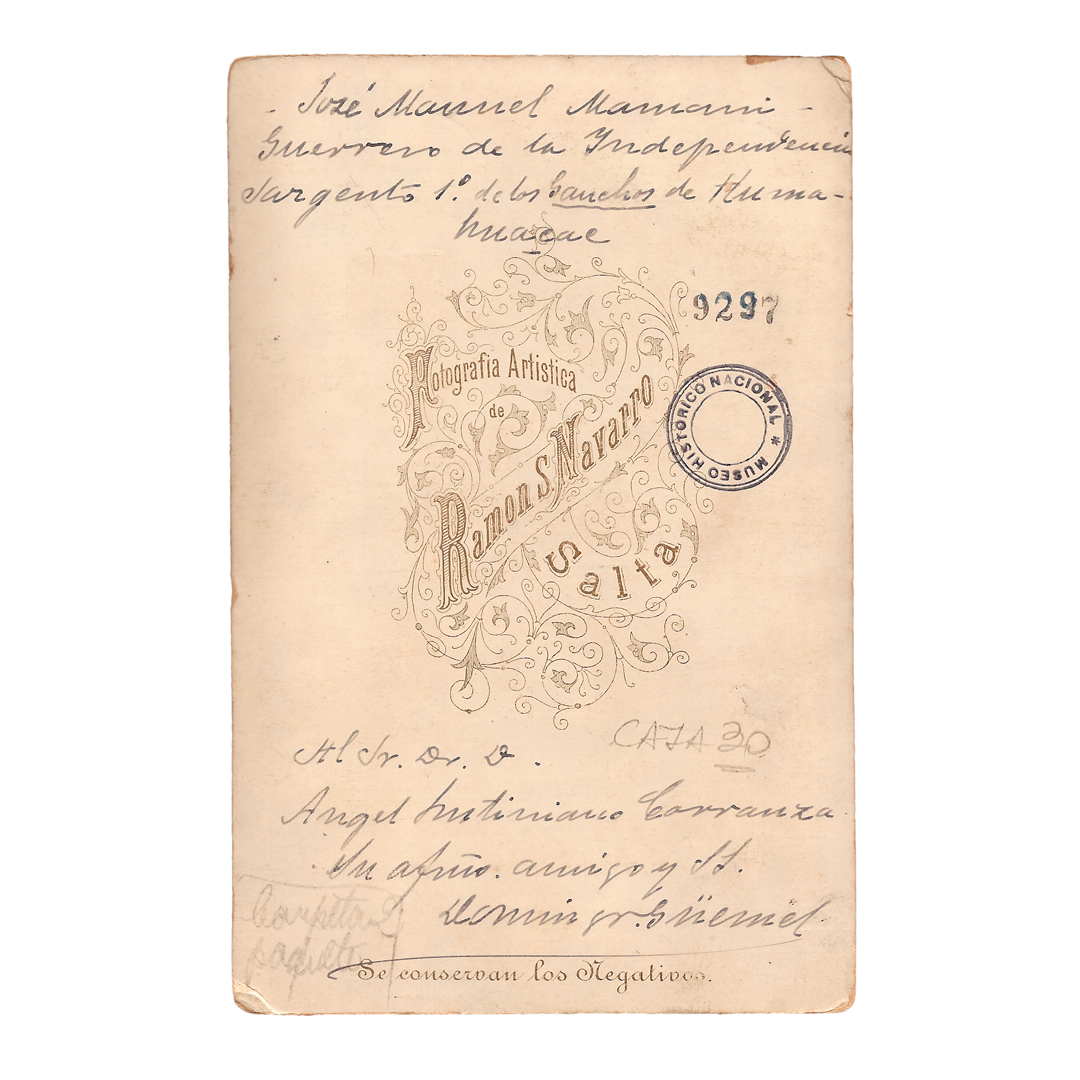 - José Manuel Mamani -
Guerrero de la Independencia
Sargento 1º. de los Gauchos de Huma-
huacac
9297
MUSEO HISTORICO NACIONAL *
Fotografia Artistica
de
Ramon S. Navarro
Salta
CAJA 30
Al Sr. Dr. D.
Angel Justiniano Carranza
Su afmo. amigo y SS.
Domingo Güemes
Carpeta
paquete
Se conservan los Negativos.